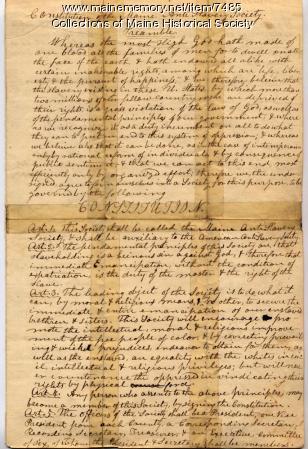 www.MaineMemory.net/item/7485
Constitution of the Maine Anti Slavery Society.
Preamble.
Whereas the most High God hath made of
one blood all the families of men to dwell on all
the face of the earth & hath endowed all alike with
certain inalienable rights, among which are life, lib-
erty & the pursuit of happiness, & we therefore believe that
the slavery existing in these States, by which more than
two millions of our fellow beings are deprived of
their rights is a gross violation of the law of God, & of
the fundamental principles of our government, &
we
we believe also that it can be done, as in the case of intemperance
by rational appeal of individuals, & by consequence
public sentiment, & that we can act to this end most
efficiently only by organized effort; therefore we the under-
signed agree to form ourselves into a Society for this purpose, to be
governed by the following
CONSTITUTION.
Art. 1. This Society shall be called the Maine Anti Slavery
Society, & shall be auxiliary to the American Anti Slavery Society
Art. 2. The fundamental principles of this Society are, that
slaveholding is a heinous sin against God, & therefore that
immediate emancipation, without the condition of
expatriation, is the duty of the master & the right of the
slave.
Art. 3. The leading object of the Society is to do what it
can, by moral & religious means, & no other, to secure the
immediate & entire emancipation of our enslaved
brethren & sisters. The Society will encourage & pro
mote the intellectual, moral & religious improve
ment of the free people of color, & by correcting prevail
ing & wicked prejudices endeavor to obtain for them, as
well as the enslaved, an equality with the whites in ci-
vil, intellectual & religious privileges; but will nev
er countenance the oppressed in vindicating their
rights by physical force.
Art. 4. Any person who assents to the above principles, may
become a member of this Society, by signing the Constitution.
Art. 5. The officers of the Society shall be a President, one Vice
President from each County, a Corresponding Secretary,
Recording Secretary, Treasurer, & an Executive Committee
of of whom the President & Secretary shall be members.
Collections of Maine Historical Society